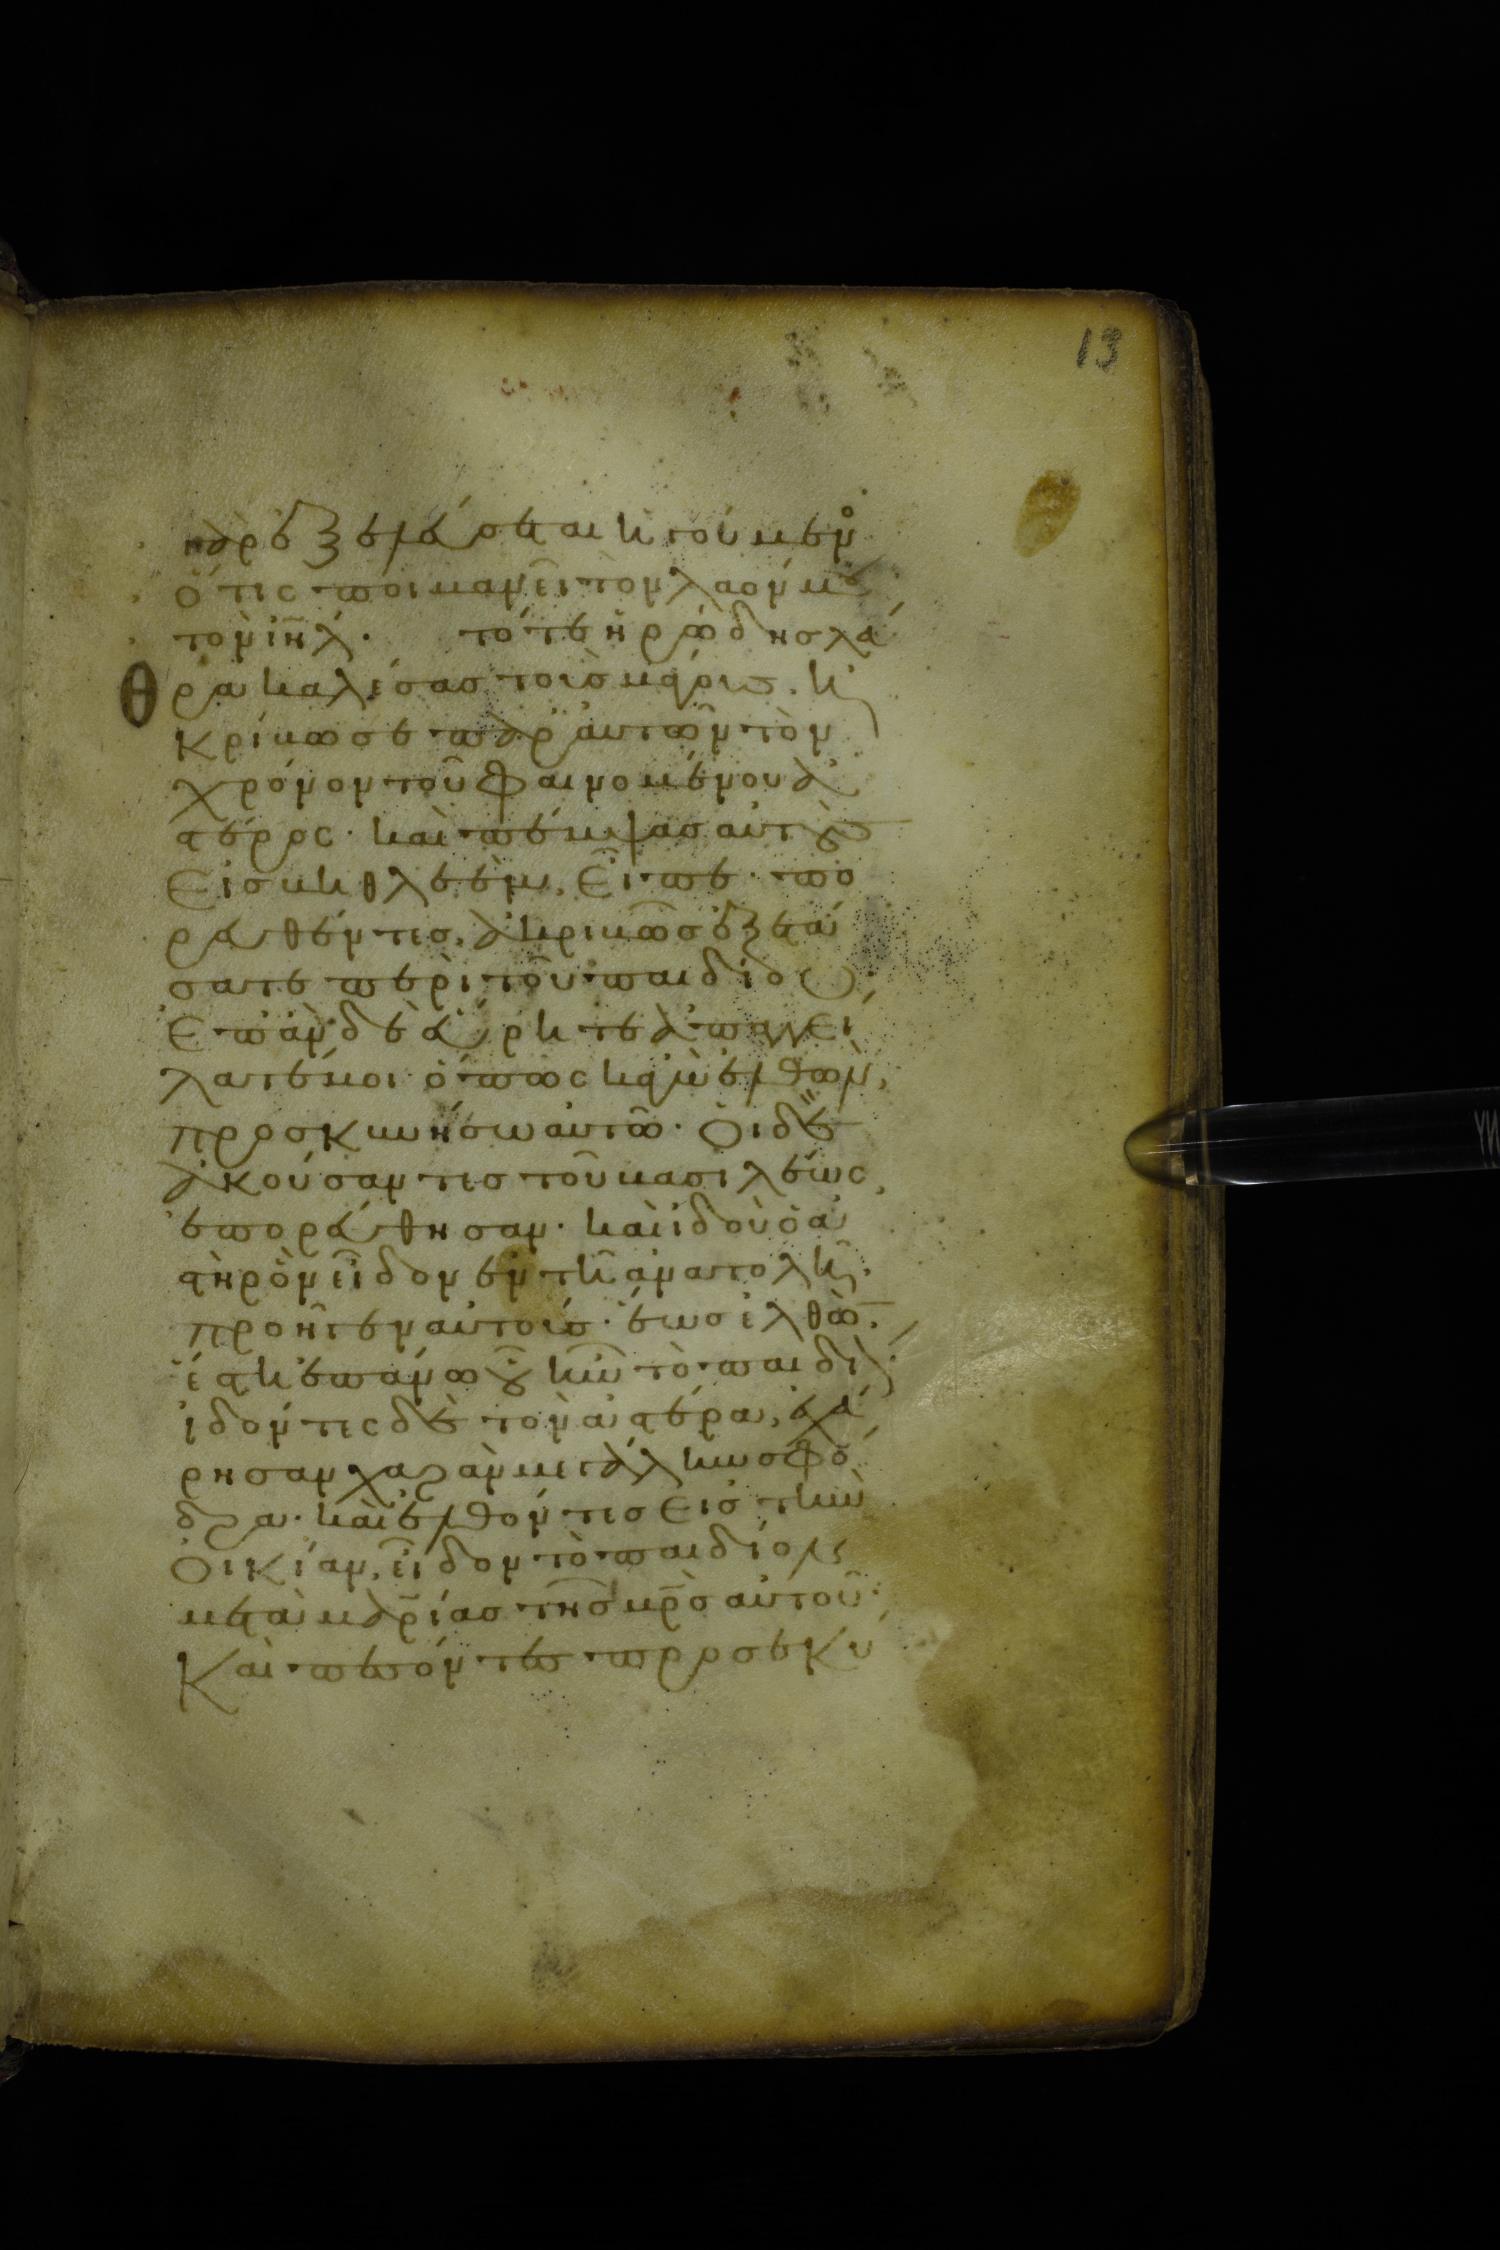 13
γὰρ ἐξελεύσεται ἡγούμενο
ὅστις ποιμανεῖ τὸν λαόν μου
τὸν ιηλ. τότε ἡρώδης λά
θρα καλέσας τοὺς μάγους. ἠ
κρίβωσε παρ αυτῶν τὸν
χρόνον τοῦ φαινομένου ἀ
στέρος. καὶ πέμψας αὐτοὺς
εἰς βηθλεὲμ, εἶπε. πο
ρευθέντες, ἀκριβῶς ἐξετά
σατε περὶ τοῦ παιδίου.
ἐπὰν δὲ εὕρητε ἀπαγγεί
λατέ μοι ὅπως κἀγὼ ἐλθὼν,
προσκυνήσω αὐτῶ. Οἱ δὲ
ἀκούσαντες τοῦ βασιλέως,
ἐπορεύθησαν. καὶ ἰδοὺ ὁ ἀ
στὴρ ὃν εἶδον ἐν τῆ ἀνατολῆ.
προῆγεν αὐτούς. ἕως ἐλθὼν
ἔστη ἐπάνω οὗ ἦν τὸ παιδίον
ἰδόντες δὲ τὸν ἀστέρα, ἐχά
ρησαν χαρὰν μεγάλην σφό
δρα. καὶ ἐλθόντες εἰς τὴν
οἰκίαν, εἶδον τὸ παιδίον
μετὰ μαρίας τῆς μρς αὐτοῦ.
Καὶ πεσόντες προσεκύ